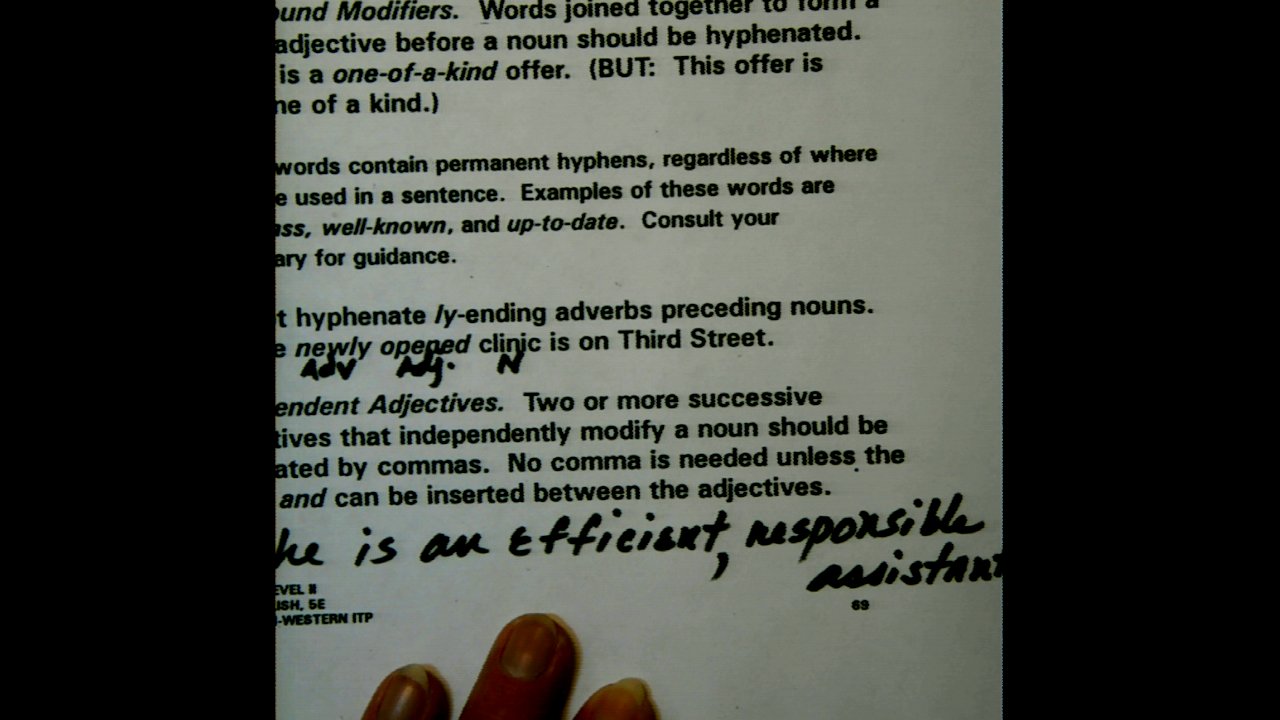 und Modifiers. Words joined together to form a
adjective before a noun should be hyphenated.
is a one-of-a-kind offer. (BUT: This offer is
ne of a kind.)
words contain permanent hyphens, regardless of where
e used in a sentence. Examples of these words are
ss, well-known, and up-to-date. Consult your
ary for guidance.
t hyphenate ly-ending adverbs preceding nouns.
e newly opened clinic is on Third Street.
Adv Adj. N
endent Adjectives. Two or more successive
tives that independently modify a noun should be
ated by commas. No comma is needed unless the
and can be inserted between the adjectives.
he is an Efficient, responsible
assistant
EVEL II
ISH, 5E
-WESTERN ITP
69